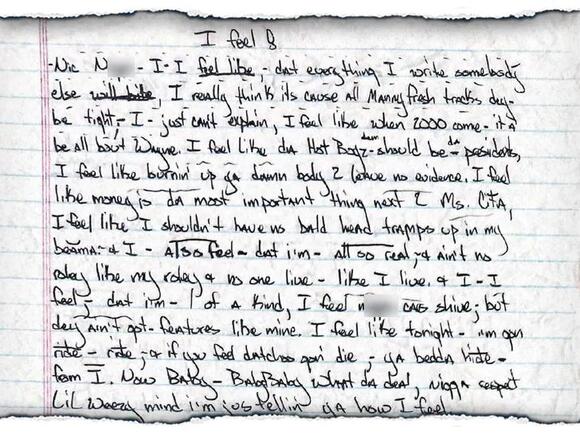 I feel
-Nic N - I - I feel like, - dat everything I write somebody
else will bite, I really think its cause all Mannyfresh tracks dey-
be tight, - I - just can't explain, I feel like when 2000 come - it'd
be all bout Wayne. I feel like da Hot Boyz - should be - da presidents,
I feel like burnin' up ya damn body 2 leave no evidence. I feel
like money is da most important thing next 2 Ms. CITA,
I feel like I shouldn't have no bald head tramps up in my
beama: & I - Also feel - dat i'm - all so real, & ain't no
roley like my roley & no one live - like I live. & I - I
feel - dat i'm - 1 of a kind, I feel n CAIS shive; but
dey ain't got - features like mine. I feel like tonight - i'm gon
ride - ride, & if you feel datchoo gon die - ya bedda hide -
from I. Now Baby - BabyBaby what da deal, nigga respect
Lil Weezy mind i'm jus tellin ya how I feel